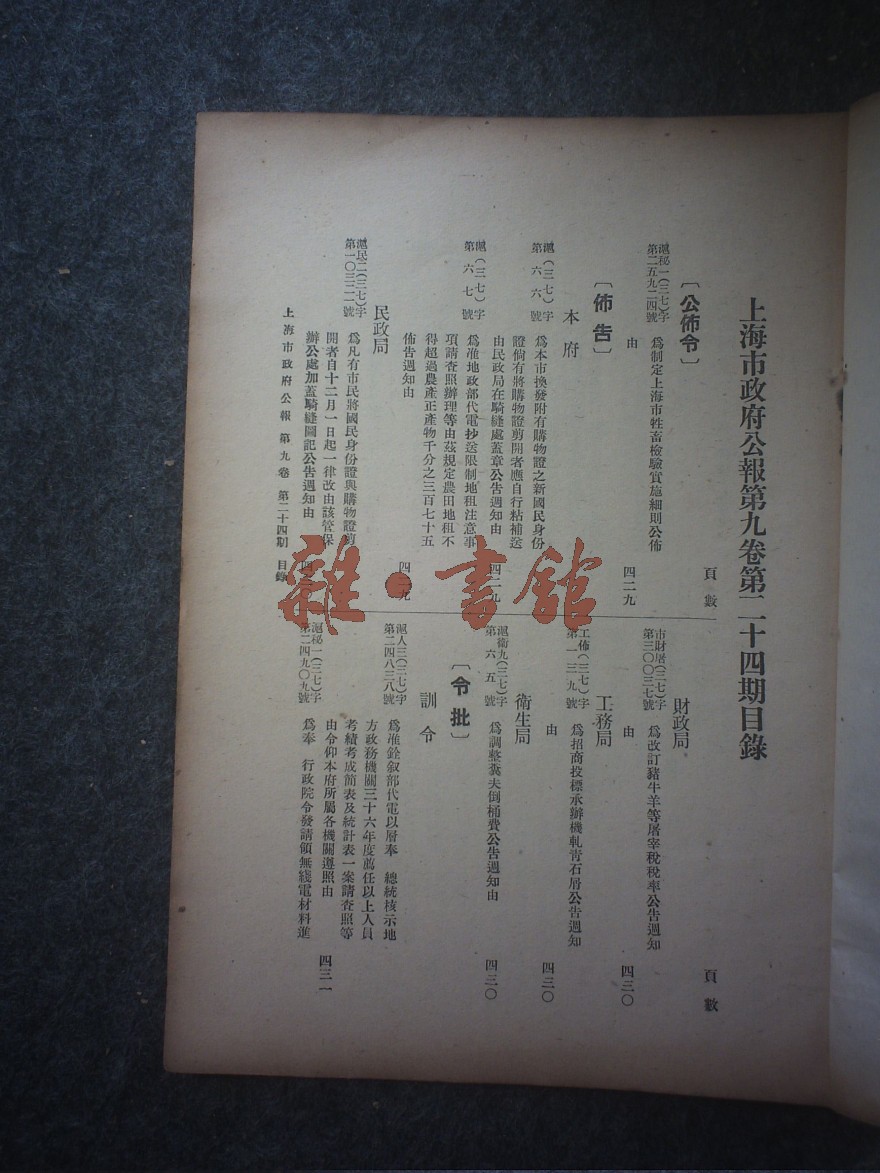 上海市政府公報第九卷第二十四期目錄
頁數
〔公佈令〕
滬秘一(三七)字
第二五九二四號
為制定上海市牲畜檢驗實施細則公佈
由
四二九
〔佈告〕
本府
滬(三七)字
第六六號
為本市換發附有購物證之新國民身份
證倘有將購物證剪開者應自行粘補送
由民政局在騎縫處蓋章公告週知由
四二九
滬(三七)字
第六七號
為准地政部代電抄送限制地租注意事
項請查照辦理等由茲規定農田地租不
得超過農產正產物千分之三百七十五
佈告週知由
四二九
民政局
滬民二(三七)字
第一〇三二一號
為凡有市民將國民身份證與購物證剪
開者自十二月一日起一律改由該管保
辦公處加蓋騎縫圖記公告週知由
頁數
財政局
市財屠(三七)字
第三〇〇三七號
為改訂豬牛羊等屠宰稅稅率公告週知
由
四三〇
工務局
工佈(三七)字
第一三九號
為招商投標承辦機軋青石屑公告週知
由
四三〇
衛生局
滬衛九(三七)字
第六五號
為調整糞夫倒桶費公告週知由
四三〇
〔令批〕
訓令
滬人三(三七)字
第二四八三八號
為准銓叙部代電以層奉 總統核示地
方政務機關三十六年度薦任以上人員
考績考成簡表及統計表一案請查照等
由令仰本府所屬各機關遵照由
四三一
滬秘一(三七)字
第二四九〇九號
為奉 行政院令發請領無綫電材料進
上海市政府公報 第九卷 第二十四期 目錄
雜·書館